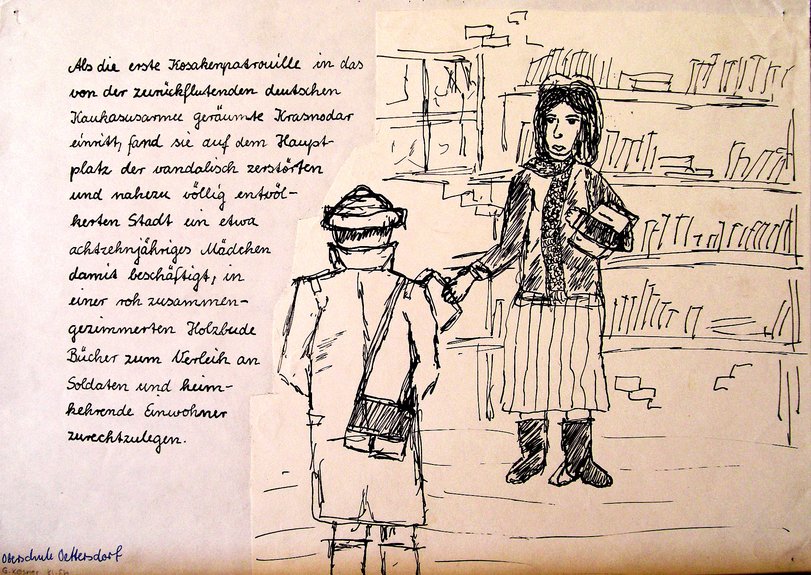 Als die erste Kosakenpatrouille in das
von der zurückflutenden deutschen
Kaukasusarmee geräumte Krasnodar
einritt, fand sie auf dem Haupt-
platz der vandalisch zerstörten
und nahezu völlig entvöl-
kerten Stadt ein etwa
achtzehnjähriges Mädchen
damit beschäftigt, in
einer roh zusammen-
gezimmerten Holzbude
Bücher zum Verleih an
Soldaten und heim-
kehrende Einwohner
zurechtzulegen.
Oberschule Oettersdorf